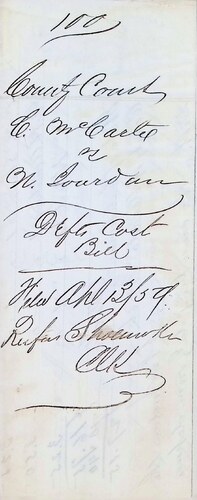 100
County Court
C. McCarter
vs
N. Jourdan
Defts Cost
Bill
Filed Apl 13/59.
Rufus
Clk